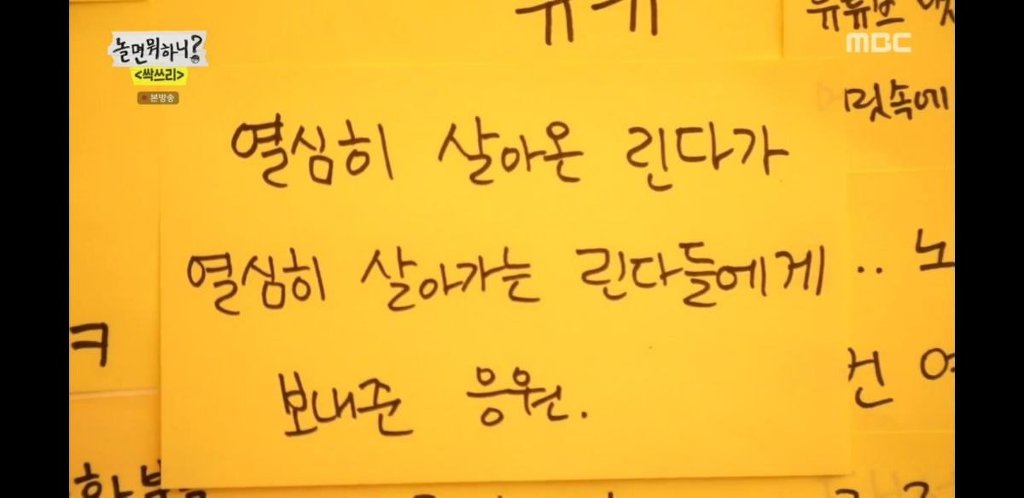 놀면뭐하니?
<싹쓰리>
본방송
MBC
열심히 살아온 린다가
열심히 살아가는 린다들에게..
보내준 응원.
밋속에
노
ㅋ
건 여